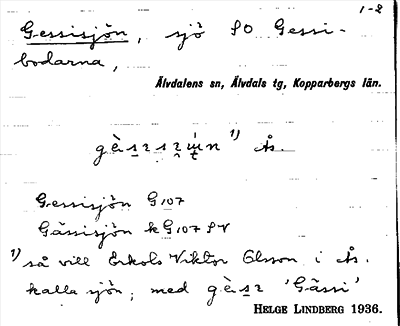 1-2
Gessisjön, sjö SO Gessi-
bodarna,
Älvdalens sn, Älvdals tg, Kopparbergs län.
1) Ås.
Gessisjön G107
Gässisjön kG107 SV
1) så vill Erkols Viktor Olsson i Ås.
kalla sjön; med 'Gässi'
HELGE LINDBERG 1936.